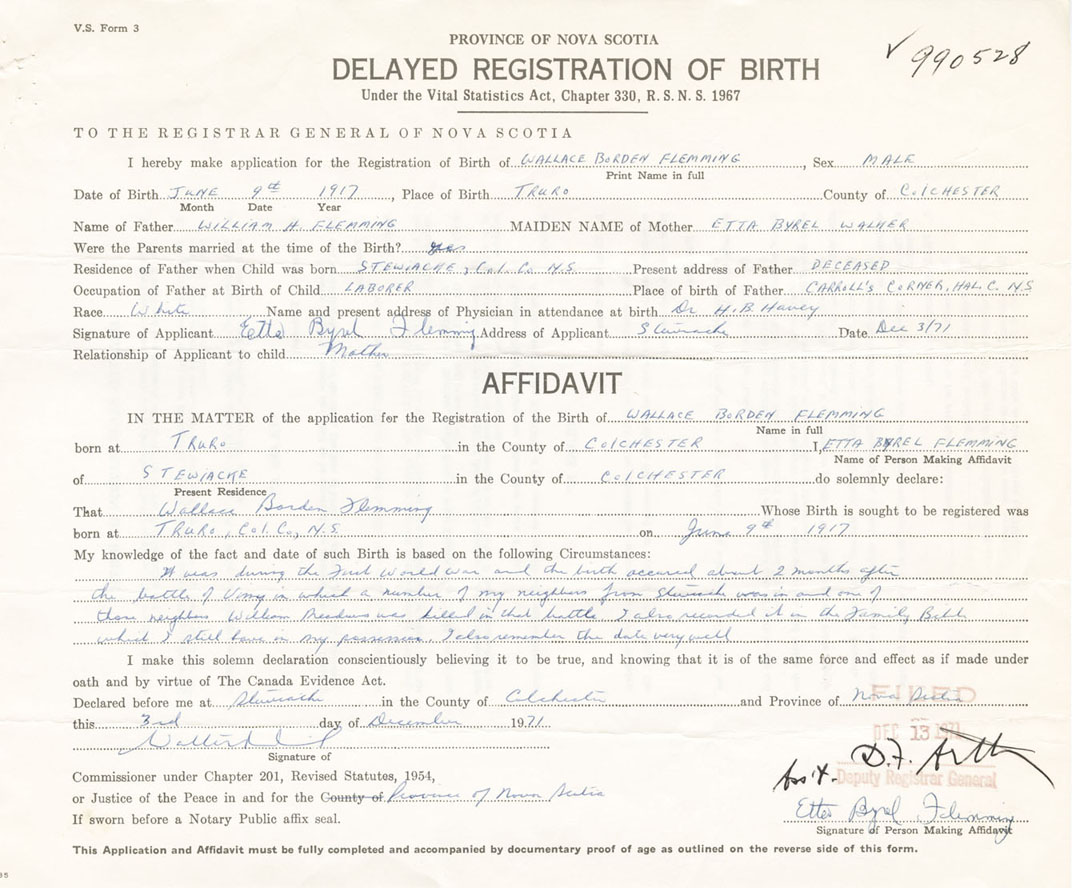 V.S. Form 3
PROVINCE OF NOVA SCOTIA
✓ 990528
DELAYED REGISTRATION OF BIRTH
Under the Vital Statistics Act, Chapter 330, R. S. N. S. 1967
TO THE REGISTRAR GENERAL OF NOVA SCOTIA
I hereby make application for the Registration of Birth of WALLACE BORDEN FLEMMING, Sex MALE
Print Name in full
Date of Birth JUNE 9th 1917, Place of Birth TRURO County of COLCHESTER
Month Date Year
Name of Father WILLIAM H. FLEMMING MAIDEN NAME of Mother ETTA BYREL WALKER
Were the Parents married at the time of the Birth? yes
Residence of Father when Child was born STEWIACKE, Col. Co. N.S. Present address of Father DECEASED
Occupation of Father at Birth of Child LABORER Place of birth of Father CARROLL'S CORNER, HAL. C. N.S
Race White Name and present address of Physician in attendance at birth Dr. H. B. Havey
Signature of Applicant Etta Byrel Flemming Address of Applicant Stewiacke Date Dec 3/71
Relationship of Applicant to child Mother
AFFIDAVIT
IN THE MATTER of the application for the Registration of the Birth of WALLACE BORDEN FLEMMING
Name in full
born at TRURO in the County of COLCHESTER I, ETTA BYREL FLEMMING
Name of Person Making Affidavit
of STEWIACKE in the County of COLCHESTER do solemnly declare:
Present Residence
That Wallace Borden Flemming Whose Birth is sought to be registered was
born at TRURO, Col. Co., N.S. on June 9th 1917
My knowledge of the fact and date of such Birth is based on the following Circumstances:
It was during the First World War and the birth occured about 2 months after
the battle of Vimy in which a number of my neighbors from Stewiacke was in and one of
these neighbors William was killed in that battle. I also recorded it in the Family Bible
which I still have in my possession. I also remember the date very well
I make this solemn declaration conscientiously believing it to be true, and knowing that it is of the same force and effect as if made under
oath and by virtue of The Canada Evidence Act.
Declared before me at Stewiacke in the County of Colchester and Province of Nova Scotia
FILED
this 3rd day of December 1971
DEC 13 1971
Signature of
D.F. Arth
Commissioner under Chapter 201, Revised Statutes, 1954,
Ass't. Deputy Registrar General
or Justice of the Peace in and for the County of Province of Nova Scotia
Etta Byrel Flemming
If sworn before a Notary Public affix seal.
Signature of Person Making Affidavit
This Application and Affidavit must be fully completed and accompanied by documentary proof of age as outlined on the reverse side of this form.